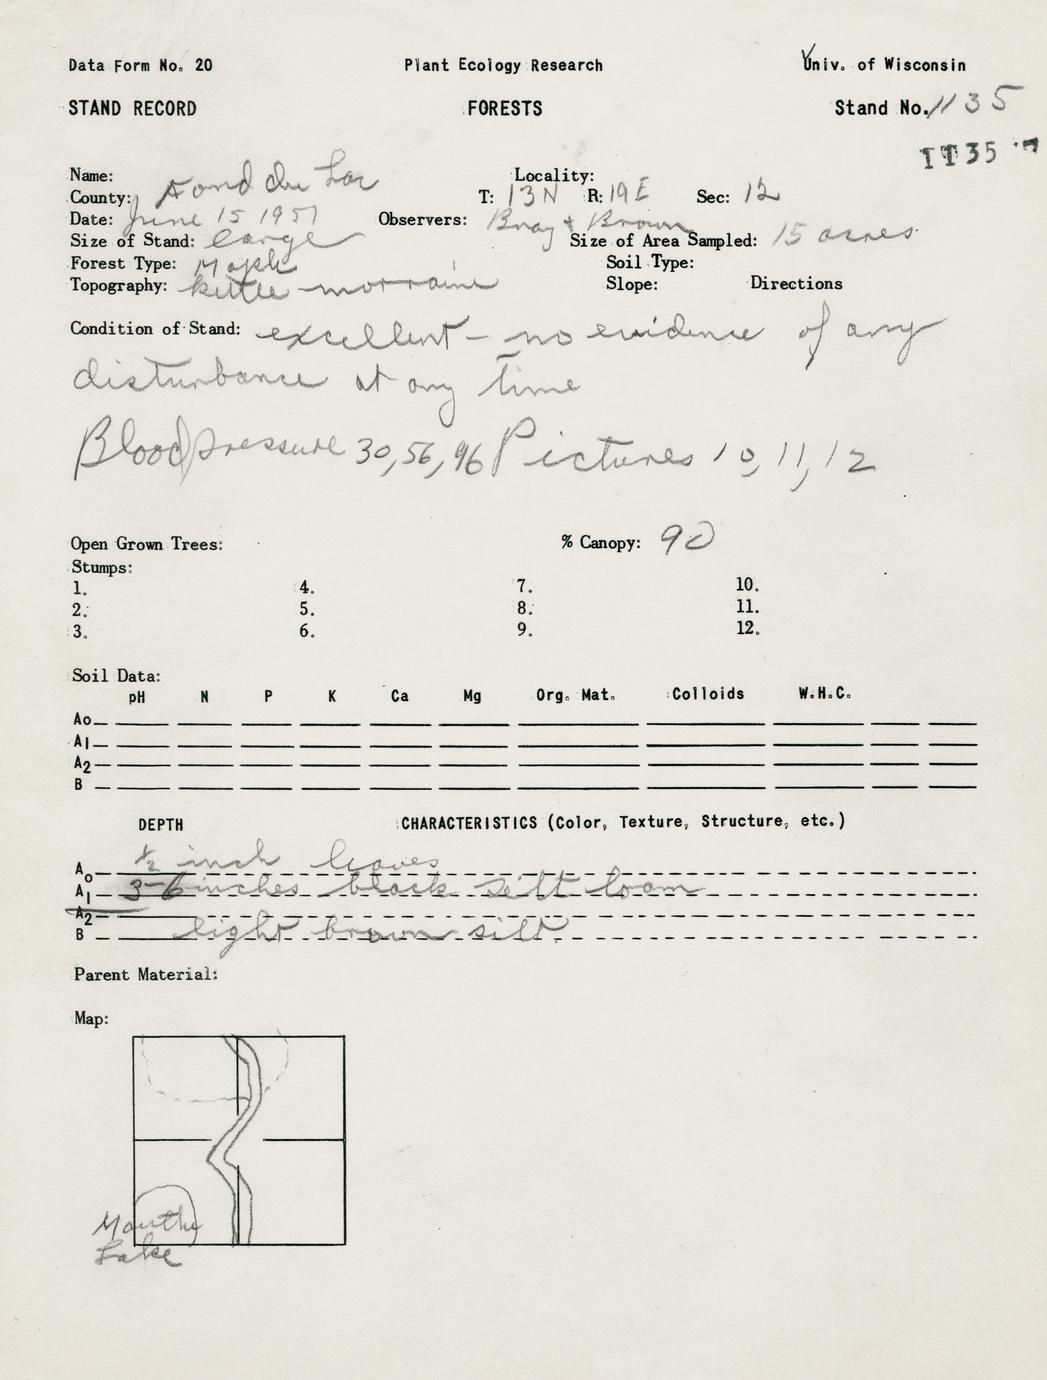 Data Form No. 20 Plant Ecology Research Univ. of Wisconsin
STAND RECORD FORESTS Stand No. 1135
1135
Name: Locality:
County: Fond du Lac T: 13N R: 19E Sec: 12
Date: June 15 1957 Observers: Bray & Brown
Size of Stand: large Size of Area Sampled: 15 acres
Forest Type: Maple Soil Type:
Topography: kettle morraine Slope: Directions
Condition of Stand: excellent - no evidence of any
disturbance at any time
Blood pressure 30, 56, 96 Pictures 10, 11, 12
Open Grown Trees: % Canopy: 90
Stumps:
1. 4. 7. 10.
2. 5. 8. 11.
3. 6. 9. 12.
Soil Data:
pH N P K Ca Mg Org. Mat. Colloids W.H.C.
Ao
A1
A2
B
DEPTH CHARACTERISTICS (Color, Texture, Structure, etc.)
Ao 1/2 inch leaves
A1 3-6 inches black silt loam
A2
B light brown silt
Parent Material:
Map:
Mauthe
Lake